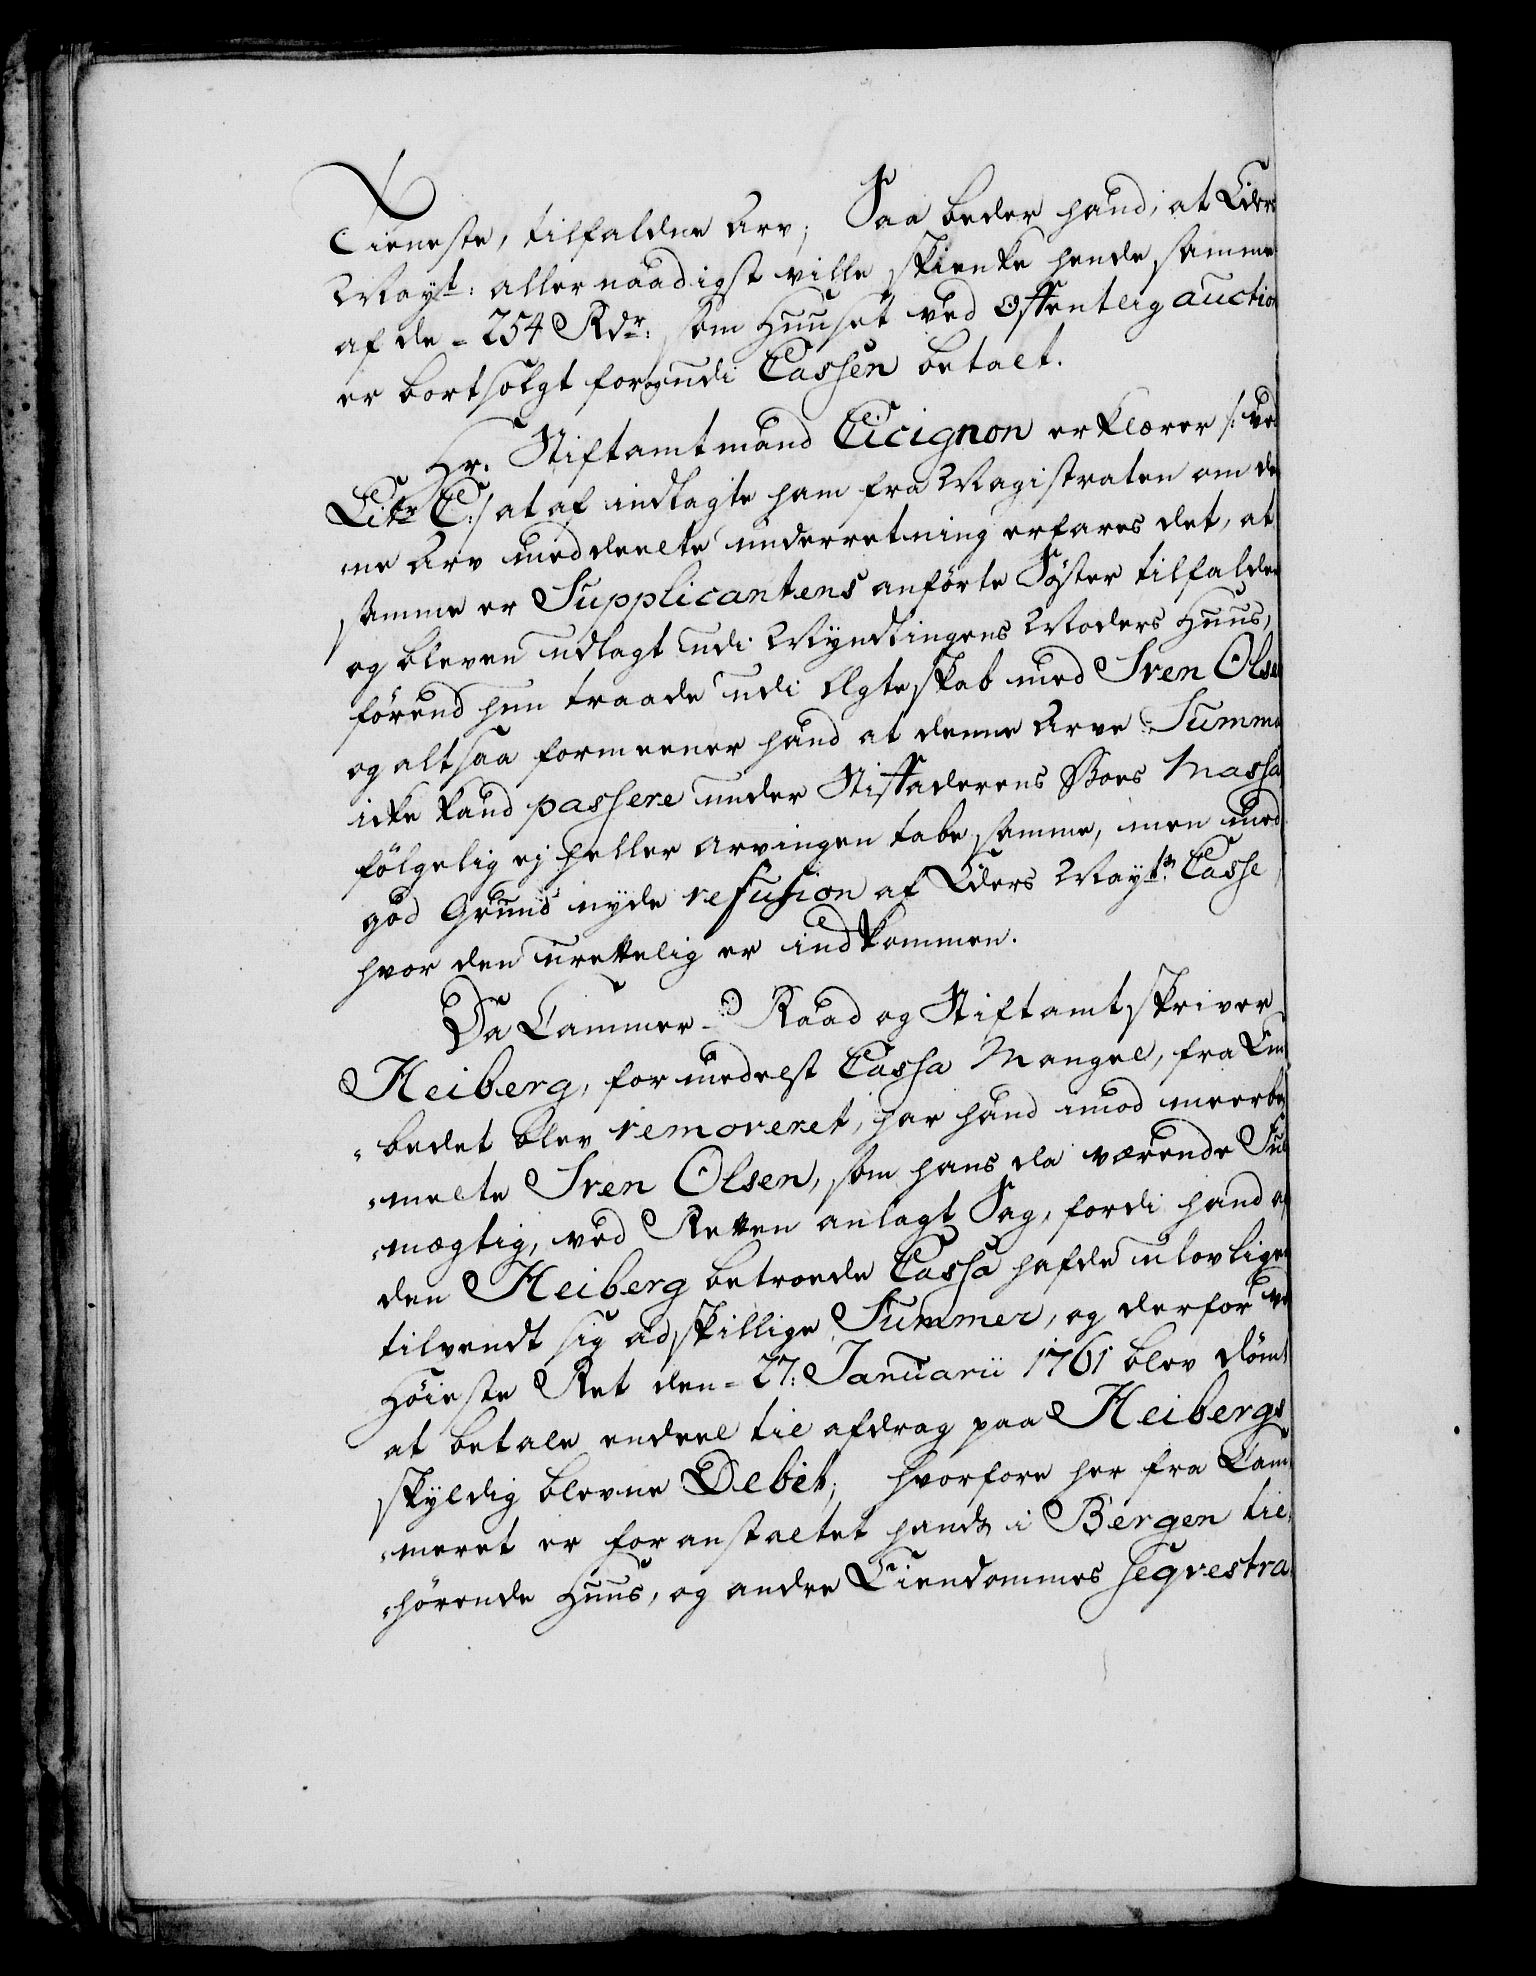 Tieneste, tilfaldne Arv; Saa beder hand, at Eders
Mayt: allernaadigst ville skienke hende samme
af de = 254 Rdr: som Huuset ved Offentlig auction
er bortsolgt for og udi Cassen betalt.
Hr. Stiftamtmand Cicignon erklærer /: ved
Litr C :/ at af indtagte ham fra Magistraten om den-
ne Arv meddeelte underretning erfares det, at
samme er Supplicantens anförte Söster tilfalden
og bleven udlagt udi Myndlingens Moders Huus,
förend hun traade udi Ægteskab med Sren Olsen
og altsaa formeener hand at denne Arve Summa
icke kand passere under Stiffaderens Boes Massa
fölgelig ej heller Arvingen tabe samme, men med
god Grund nyde refusion af Eders Mayts Casse,
hvor den urettelig er indkommen.
Da Cammer-Raad og Stiftamtskriver
Heiberg, formedelst Cassa Mangel, fra Em-
bedet blev removeret, har hand imod meerbe-
melte Sren Olsen, som hans da værende Fuld-
mægtig, ved Retten anlagt Sag, fordi hand af
den Heiberg betroede Cassa hafde ulovligen
tilvendt sig adskillige Summer, og derfor ved
Höieste Ret den = 27: Januarii 1761 blev dömt
at betale endeel til afdrag paa Heibergs
skyldig blevne Debet; hvorfore her fra Cam-
meret er foranstaltet hands i Bergen til-
hörende Huus, og andre Eiendommes seqvestra-